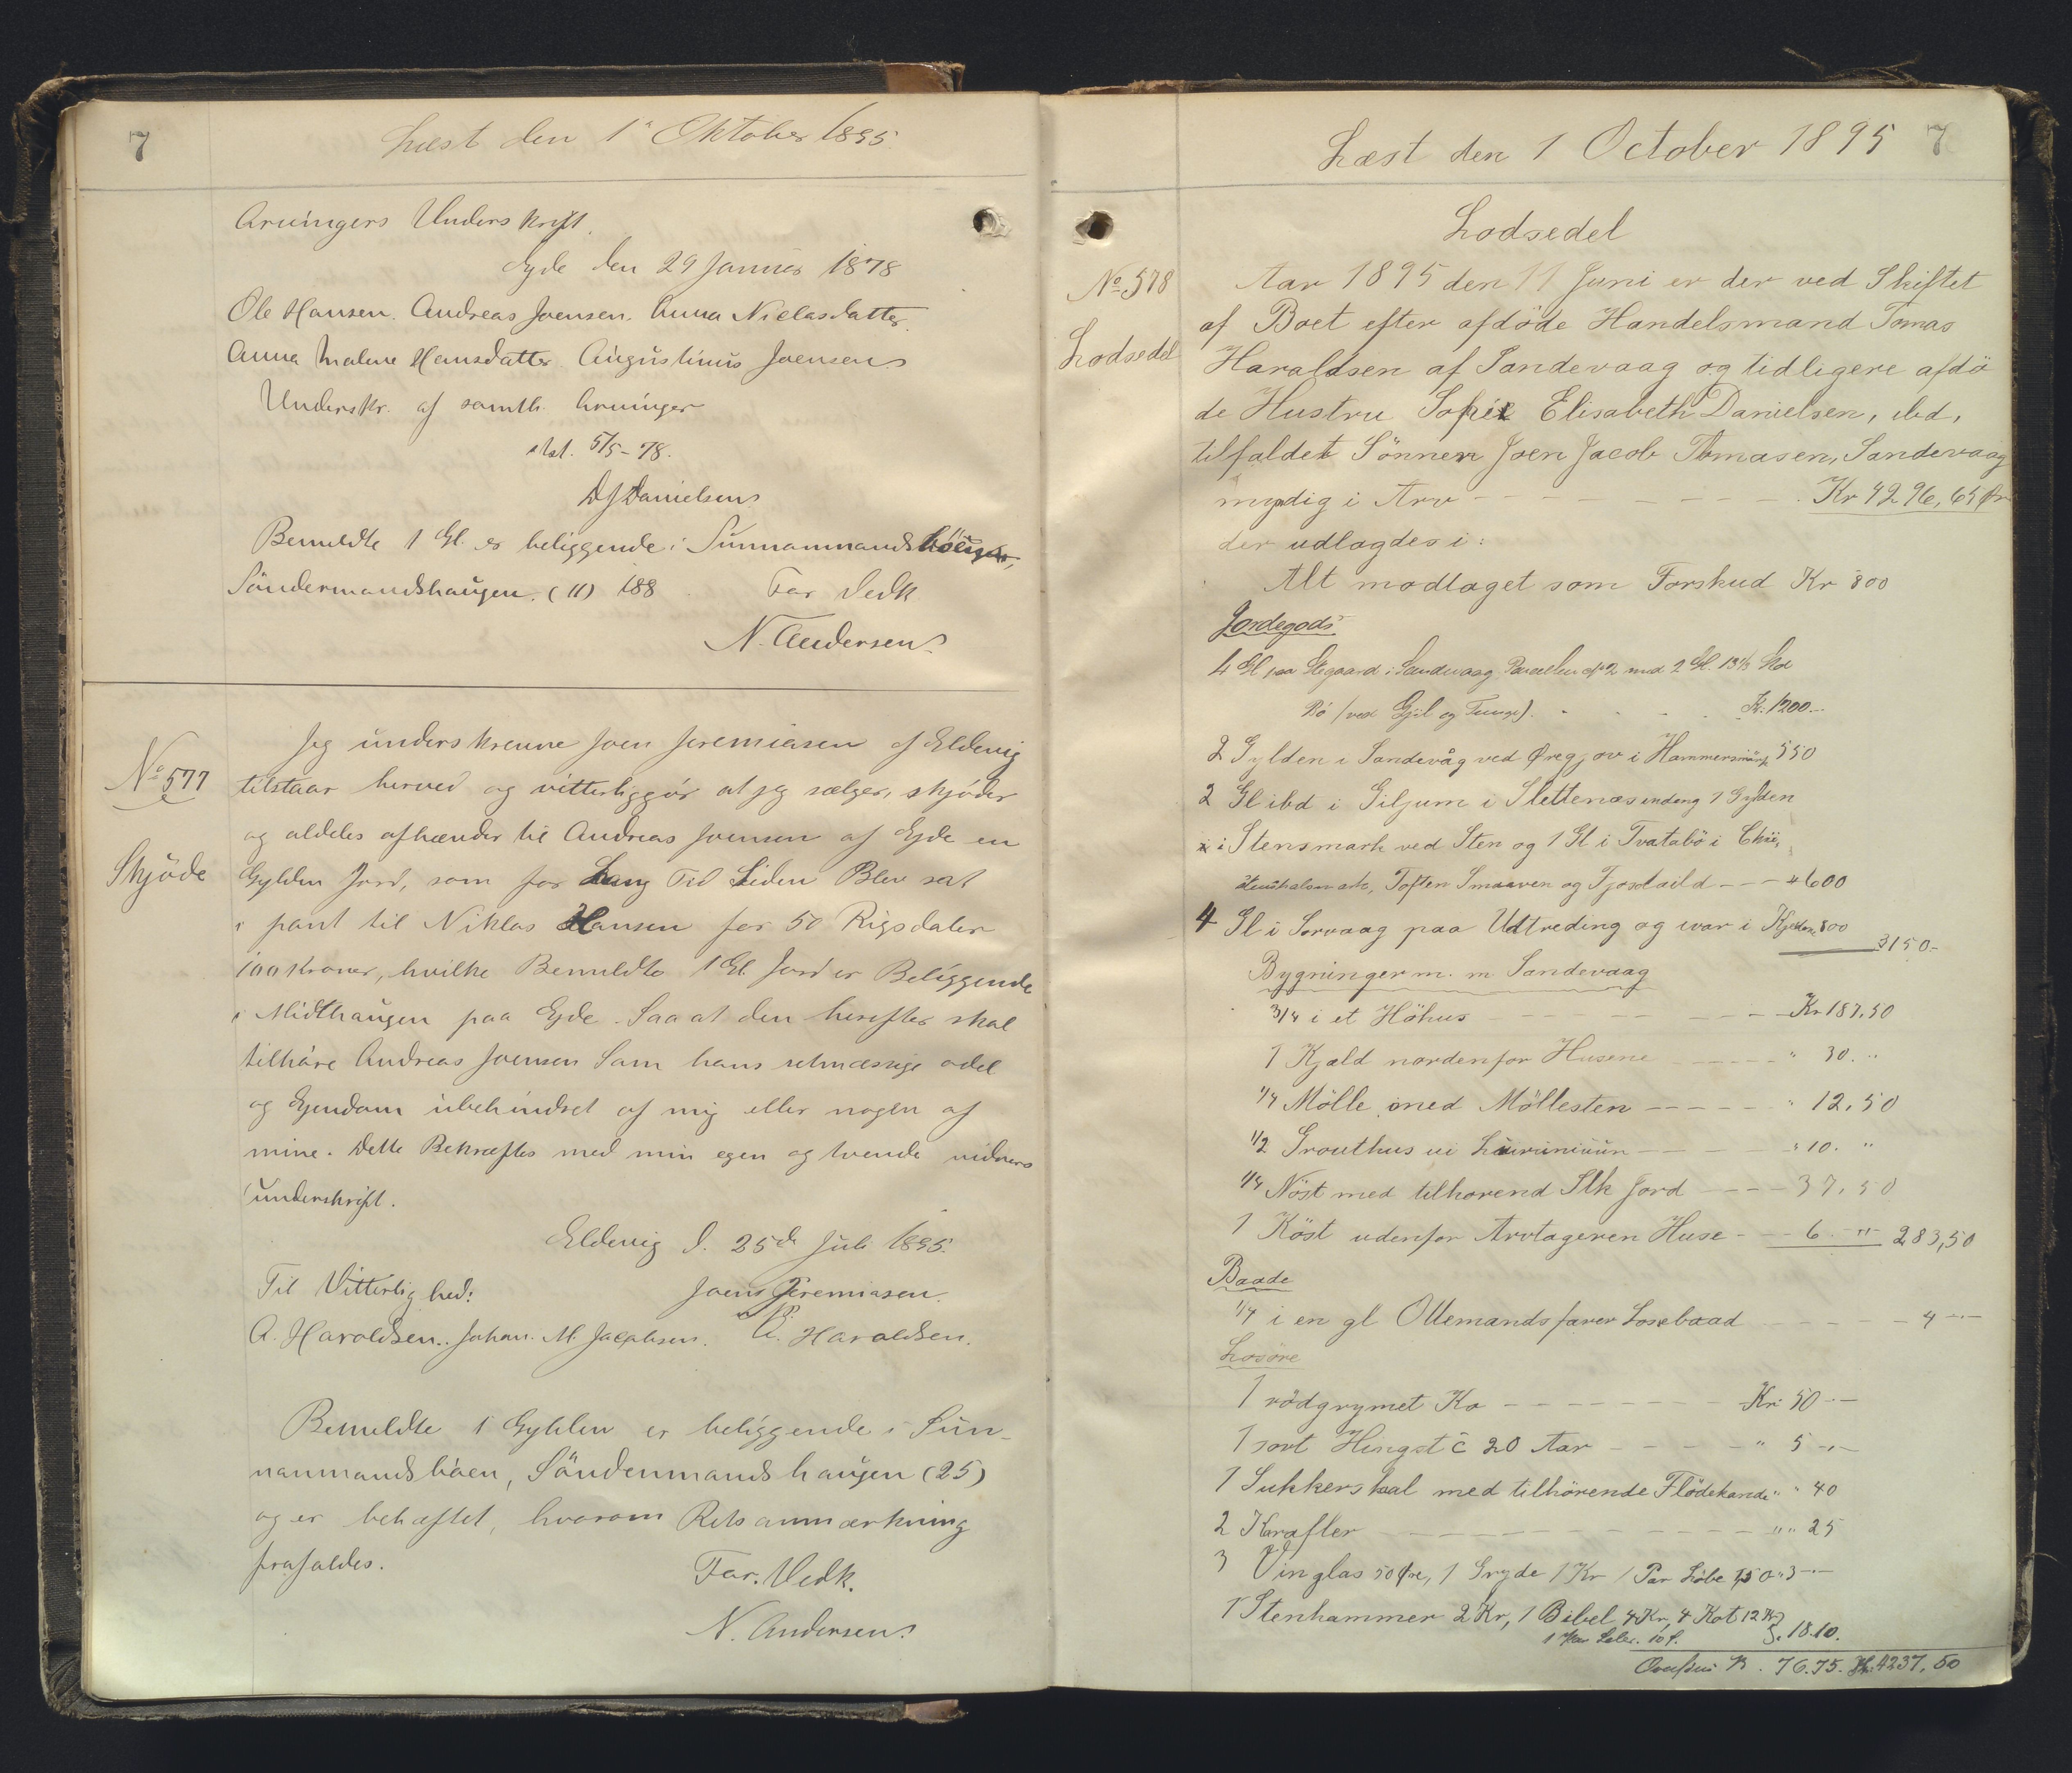 7
Læst den 1 Oktober 1895
Arvingers Underskrift.
Ejde den 29 Januar 1878
Ole Hansen. Andreas Joensen. Anna Niclasdatter.
Anna Malene Hansdatter. Augustinus Joensen
Underskr. af samtl. Arvinger
5/5-78.
DJDanielsen
Bemeldte 1 Gl. er beliggende i Sunnanmands
Söndermandshaugen. (11) 188 Før Vedk
N. Andersen.
No 577
Skjöde
Jeg underskrevne Joen Jeremiasen af Eldevig
tilstaar herved og vitterliggör at jeg sælger, skjöder
og aldeles afhænder til Andreas Joensen af Ejde en
Gylden Jord, som for Lang Tid Siden Blev sat
i pant til Niklas Hansen for 50 Rigsdaler
100 Kroner, hvilke Bemeldte 1 Gl. Jord er Beliggende
i Midthaugen paa Ejde. Saa at den herefter skal
tilhöre Andreas Joensen Som hans retmæssige odel
og Ejendom ubehindret af mig eller nogen af
mine. Dette Bekræftes med min egen og tvende vidners
underskrift.
Eldevig d. 25de Juli 1895.
Til Vitterlighed: Joen Jeremiasen.
A. Haraldsen. Johan. M. Jacobsen. A. Haraldsen.
Bemeldte 1 Gylden er beliggende i Sun-
nanmandsböen, Söndenmandshaugen (25)
og er behæftet, hvorom Retsanmærkning
frafaldes.
Før. Vedk.
N. Andersen.
Læst den 1 October 1895 7
Lodsedel
No 578
Lodsedel
Aar 1895 den 11 Juni er der ved Skiftet
af Boet efter afdöde Handelsmand Tomas
Haraldsen af Sandevaag og tidligere afdö
de Hustru Sofie Elisabeth Danielsen, ibd,
tilfaldet Sönnen Joen Jacob Tomasen, Sandevaag
myndig i Arv - - - Kr 4296,65 Ør
der udlagdes i:
Alt modtaget som Forskud Kr 800
Jordegods
4 Gl paa Stegaard i Sandevaag Parcellen No 2 med 2 Gl. 13 1/3 Skd
Bö (ved Gjil og Tunge). Kr. 1200.-
2 Gylden i Sandevåg ved Øregjov i Hammersmark 550
2 Gl ibd i Giljum i Slettenæs endeng 1 Gylden
i Stensmark ved Sten og 1 Gl i Tvatabö i
Toften Smaaven og - - - 600
4 Gl i Sorvaag paa Udtreding og war i 800
3150-
Bygninger m. m Sandevaag
3/4 i et Höhus - - - Kr 187.50
1 Kjald nordenfor Husene - - - " 30. "
1/4 Mölle med Möllesten - - - " 12,50
1/2 Grouthus - - - " 10. "
1/4 Nöst med tilhorend Stk Jord - - - 37,50
1 Köst udenfor Arvtageren Huse - - 6 " 283,50
Baade
1/4 i en gl Ottemandsfarer Losebaad - - - 4 "
Losöre
1 rödgrymet Ko - - - Kr 50 -
1 sort Hingst c 20 Aar - - - " 5 -
1 Sukkerskal med tilhörende Flödekande " " 40
2 Karafler - - - " " 25
3 Vinglas 50 Øre, 1 Gryde 1 Kr 1 Par Löbe 1,50 " 3 -
1 Stenhammer 2 Kr, 1 Bibel 4 Kr, 4 Kot 12 Kr
1 Par 10 Ø. 18.10.
Kr. 76.75. Kr. 4237,50